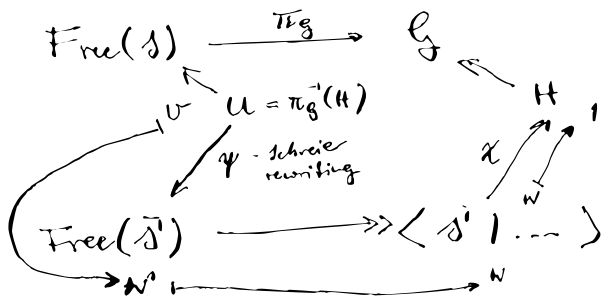 Free(S) π_G G
U = π_G^{-1}(H) H
v 1
ψ - Schreier χ
rewriting
w
Free(S') ⟨ S' | .... ⟩
w' w